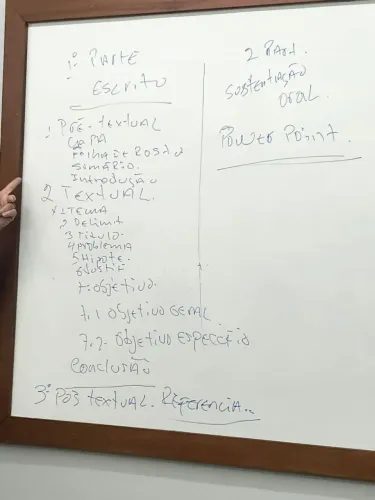 1º PARTE
ESCRITO
1 PRÉ-TEXTUAL
CAPA
FOLHA DE ROSTO
SUMÁRIO.
INTRODUÇÃO
2 TEXTUAL.
1 TEMA
2 Delimit
3 Título.
4 Problema
5 Hipote.
6 Justif
7. objetivo.
7.1 objetivo GERAL
7.2. objetivo ESPECÍFIO
Conclusão
3º Pós textual. Referencia..
2 Part.
SUBTENTAÇÃO
oral.
Power Point.